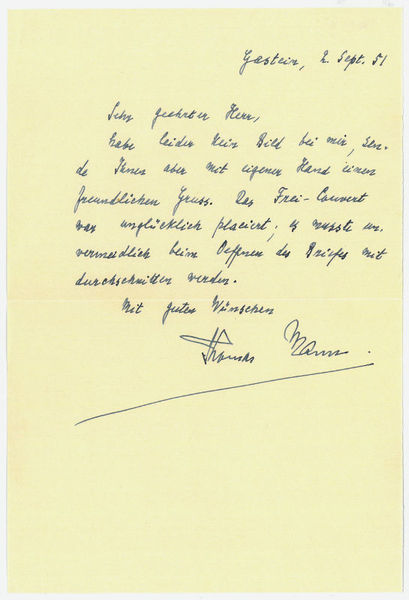 Gastein, 2. Sept. 51
Sehr geehrter Herr,
habe leider kein Bild bei mir, sen-
de Ihnen aber mit eigener Hand einen
freundlichen Gruss. Das Frei-Couvert
war unglücklich placiert; es musste un-
vermeidlich beim Oeffnen des Briefes mit
durchschnitten werden.
Mit guten Wünschen
Thomas Mann.